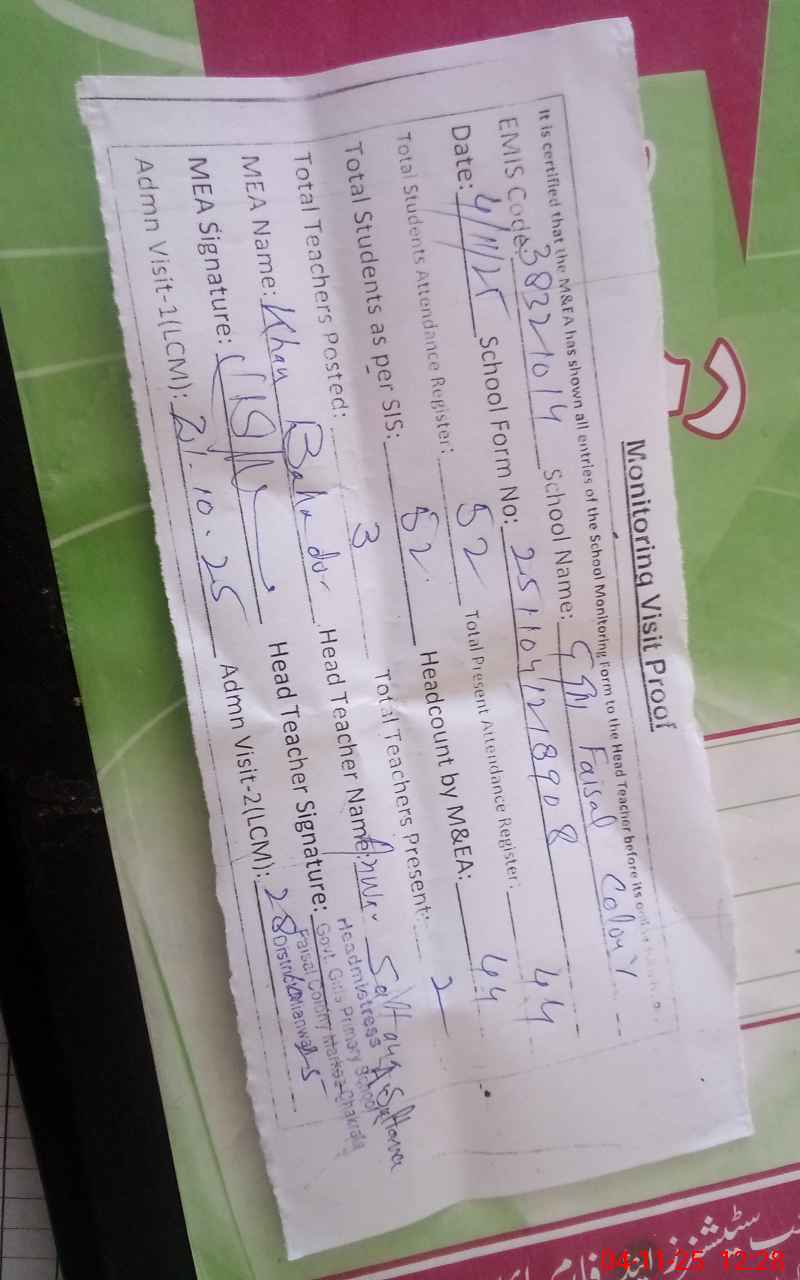 Monitoring Visit Proof
It is certified that the M&EA has shown all entries of the School Monitoring Form to the Head Teacher before its
EMIS Code: 38321014 School Name: Faisal Colony
Date: 4/11/25 School Form No: 2511041218908
Total Students Attendance Register: 52 Total Present Attendance Register: 44
Total Students as per SIS: 52 Headcount by M&EA: 44
Total Teachers Posted: 3 Total Teachers Present: 2
MEA Name: Khan Bahadur Head Teacher Name: Sultana
MEA Signature: Head Teacher Signature: A. Sultana
Headmistress
Govt. Girls Primary School
Faisal Colony Markaz Chakrala
District Mianwali
Admn Visit-1(LCM): 21-10-25 Admn Visit-2(LCM): 28
04.11.25 12:28